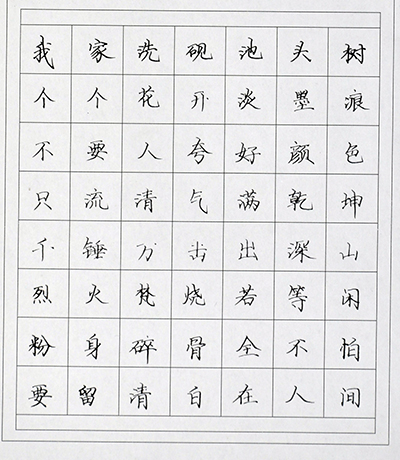 我家洗砚池头树
个个花开淡墨痕
不要人夸好颜色
只流清气满乾坤
千锤万击出深山
烈火焚烧若等闲
粉身碎骨全不怕
要留清白在人间